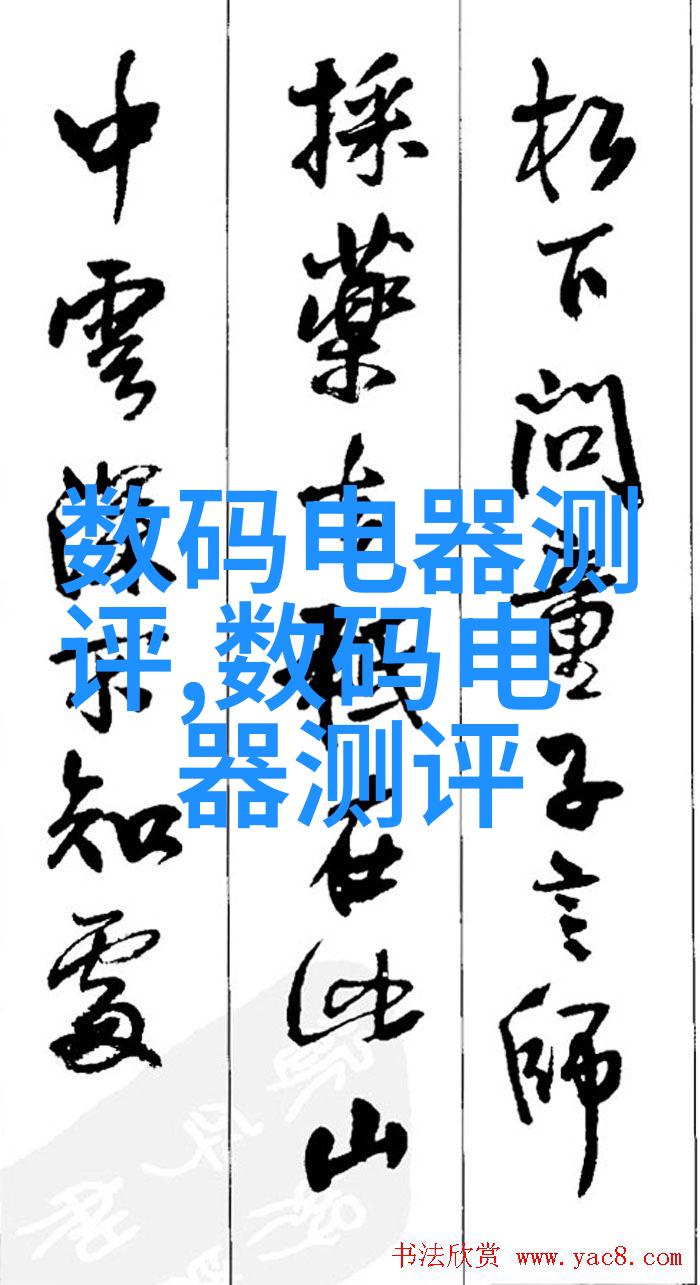 松下问童子言師
採藥去秖在此山
中雲深不知處
数码电器测
评,数码电
器测评
书法欣赏 www.yac8.com